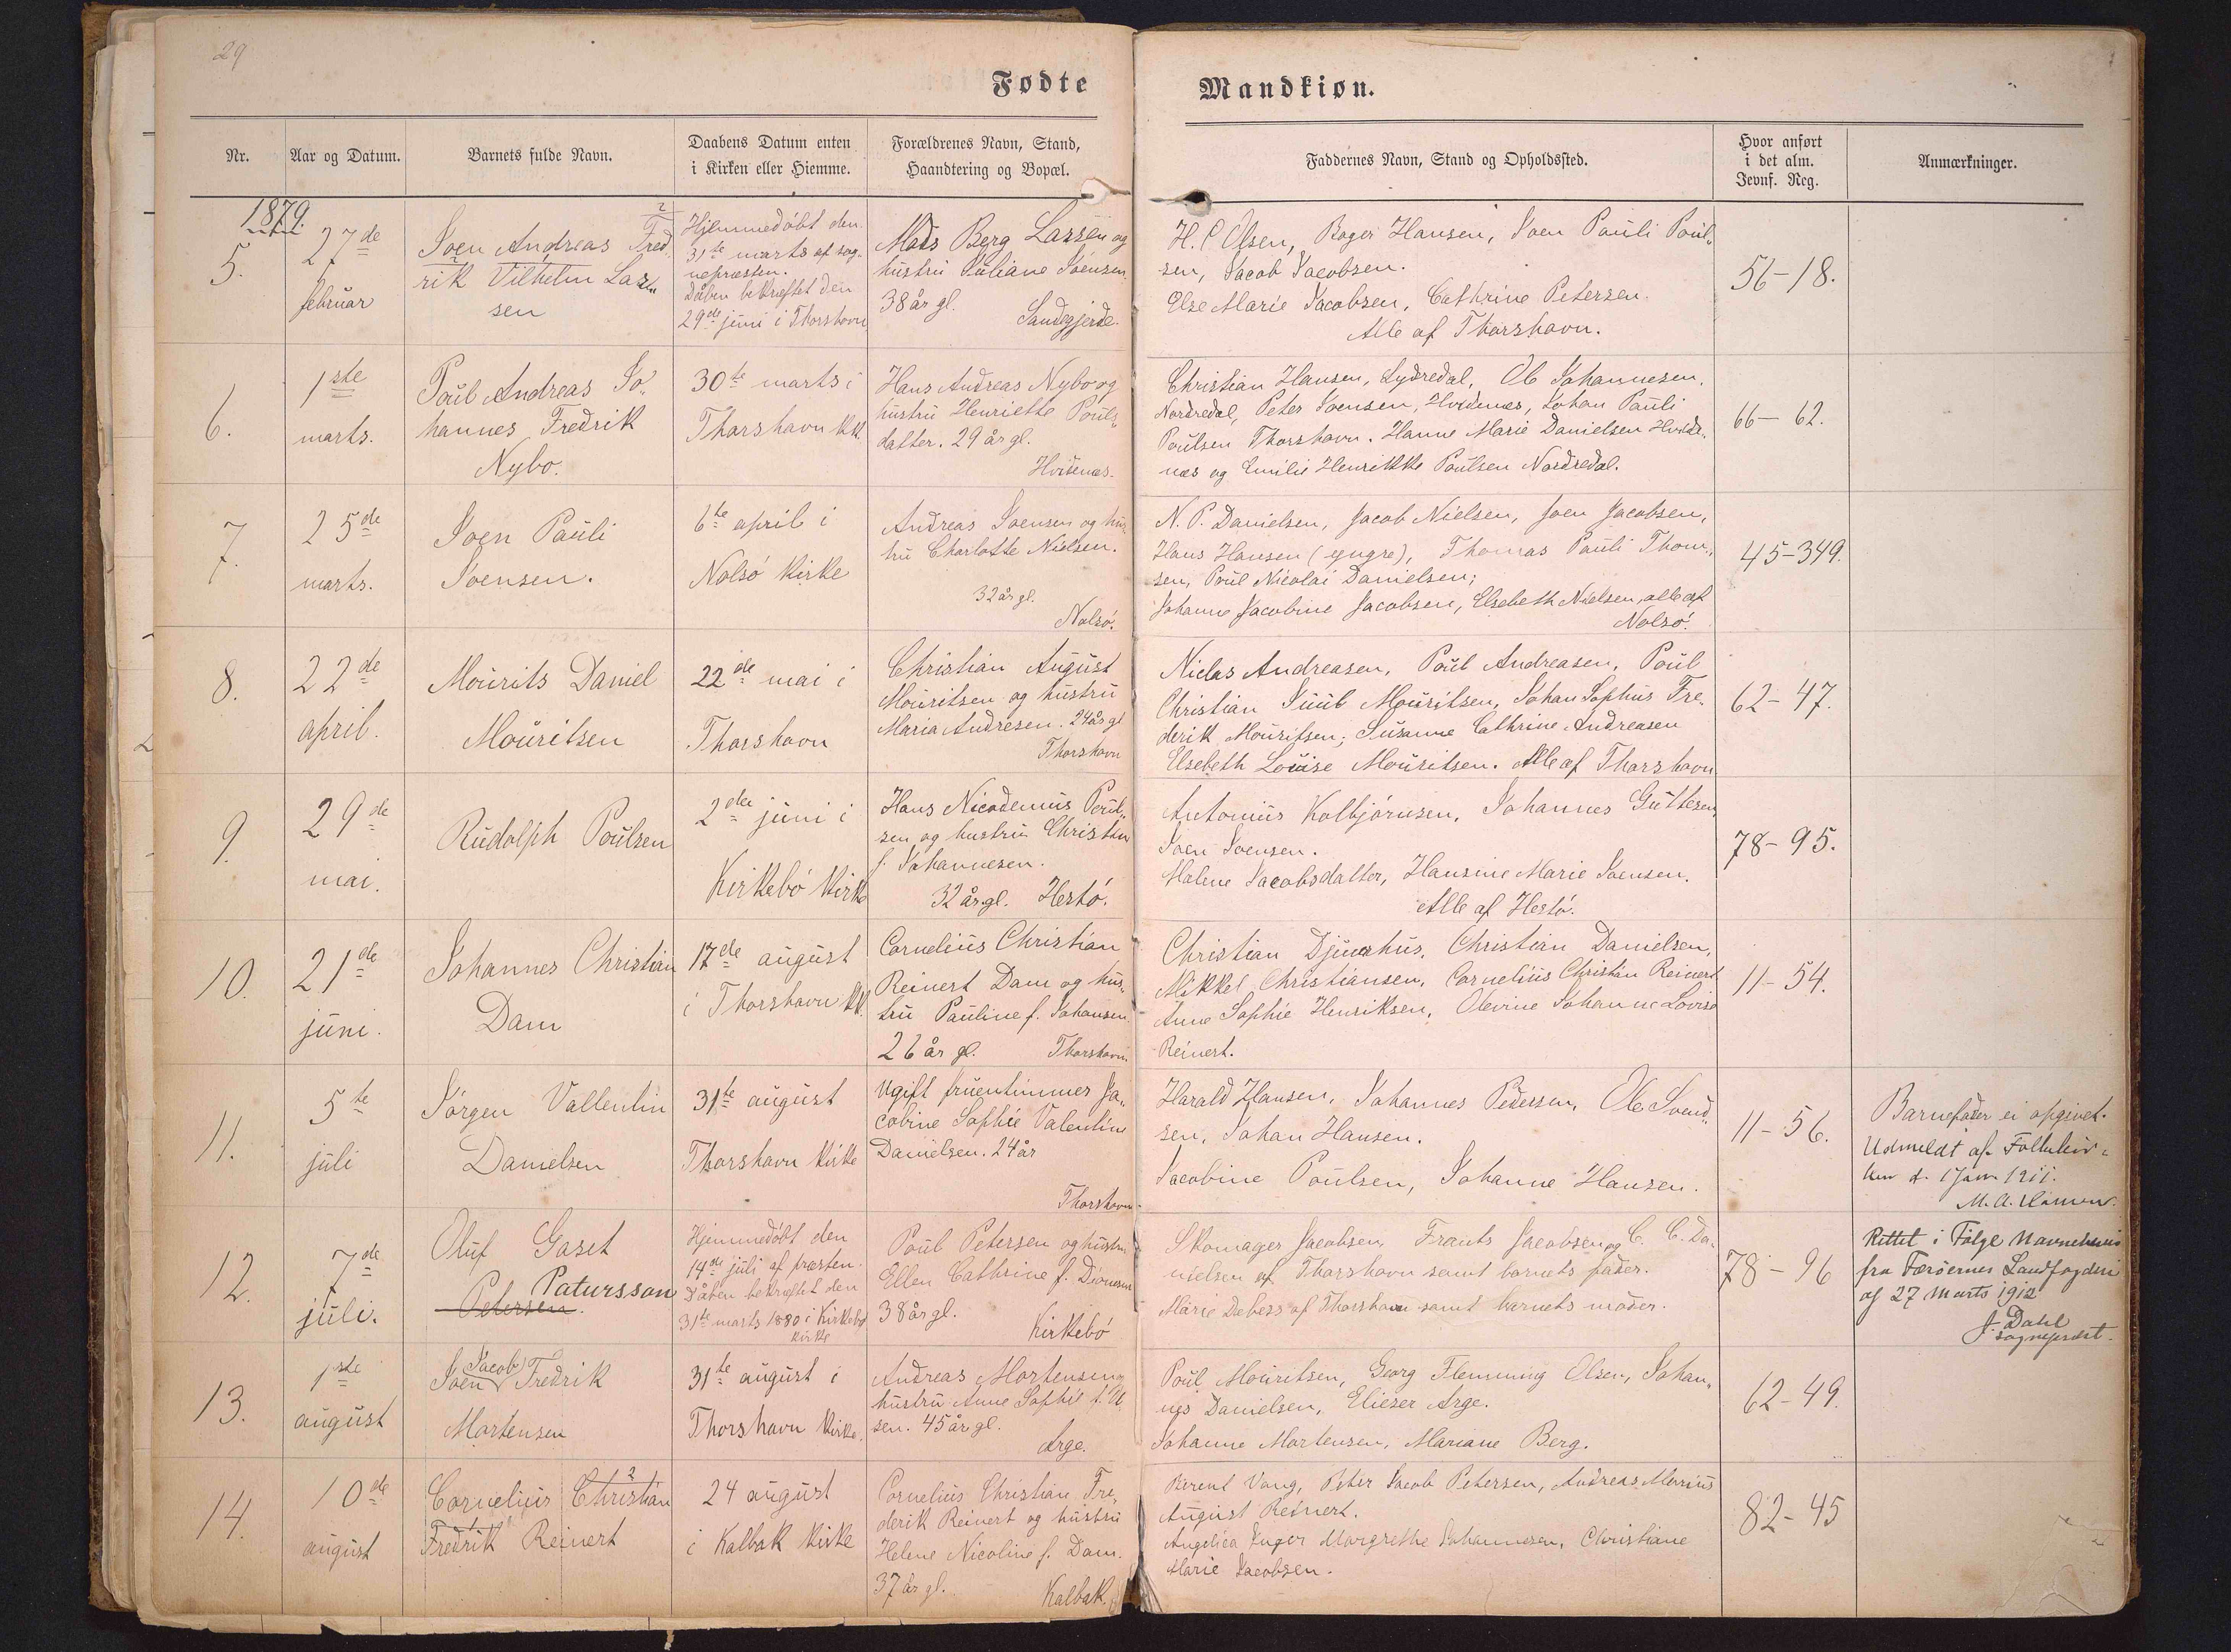 29
Fødte
Mandkiøn.
Nr.
Aar og Datum.
Barnets fulde Navn.
Daabens Datum enten
i Kirken eller Hiemme.
Forældrenes Navn, Stand,
Haandtering og Bopæl.
Faddernes Navn, Stand og Opholdssted.
Hvor anført
i det alm.
Jevnf. Reg.
Anmærkninger.
1879.
5.
27de
februar
Joen Andreas Fred
rik Vilhelm Las„
sen
Hjemmedöbt den
31te marts af sog„
nepræsten.
Dåben bekræftet den
29de juni i Thorshavn
Mads Berg Lassen og
hustru Juliane Joensen
38 år gl.
Sandegjerde.
H. C Olsen, Bager Hansen, Joen Pauli Poul„
sen, Jacob Jacobsen.
Else Marie Jacobsen, Cathrine Petersen.
Alle af Thorshavn.
56-18.
6.
1ste
marts.
Poul Andreas Jo„
hannes Fredrik
Nybo.
30te marts i
Thorshavn kk.
Hans Andreas Nybo og
hustru Henriette Pouls„
datter. 29 år gl.
Hvidenæs.
Christian Hansen, Sydredal, Ole Johannesen,
Nordredal, Peter Joensen, Hvidenæs, Johan Pauli
Poulsen Thorshavn. Hanne Marie Danielsen Hvide„
næs og Emilie Henrikke Poulsen Nordredal.
66-62.
7.
25de
marts.
Joen Pauli
Joensen.
6te april i
Nolsö kirke
Andreas Joensen og hus„
tru Charlotte Nielsen.
32 år gl.
Nolsö.
N. P. Danielsen, Jacob Nielsen, Joen Jacobsen,
Hans Hansen (yngre), Thomas Pauli Thom„
sen, Poul Nicolai Danielsen;
Johanne Jacobine Jacobsen, Elsebeth Nielsen, alle af
Nolsö.
45-349.
8.
22de
april.
Mourits Daniel
Mouritsen
22de mai i
Thorshavn
Christian August
Mouritsen og hustru
Maria Andresen. 24 år gl
Thorshavn
Niclas Andreasen, Poul Andreasen, Poul
Christian Juul Mouritsen, Johan Sophus Fre„
derik Mouritsen; Susanne Cathrine Andreasen
Elsebeth Louise Mouritsen. Alle af Thorshavn
62-47.
9.
29de
mai.
Rudolph Poulsen
2den juni i
Kirkebö kirke
Hans Nicodemus Poul„
sen og hustru Christine
f. Johannesen.
32 år gl. Hestö.
Antonius Kolbjörnsen, Johannes Guttesen,
Joen Joensen.
Malene Jacobsdatter, Hansine Marie Joensen.
Alle af Hestö.
78-95.
10.
21de
juni.
Johannes Christian
Dam
17de august
i Thorshavn kk.
Cornelius Christian
Reinert Dam og hus„
tru Pauline f. Johansen.
26 år gl. Thorshavn
Christian Djurhus, Christian Danielsen,
Mikkel Christiansen, Cornelius Christian Reinert
Anne Sophie Henriksen, Olevine Johanne Lovise
Reinert.
11-54.
11.
5te
juli
Jörgen Vallentin
Danielsen
31te august
Thorshavn kirke
Ugift fruentimmer Ja„
cobine Sophie Valentine
Danielsen. 24 år
Thorshavn
Harald Hansen, Johannes Pedersen, Ole Svend„
sen, Johan Hansen.
Jacobine Poulsen, Johanne Hansen.
11-56.
Barnefader ei opgivet.
Udmeldt af Folkekir-
ken d. 17 Jan 1911.
12.
7de
juli.
Oluf Gaset
Patursson
Petersen.
Hjemmedöbt den
14de juli af præsten.
Dåben bekræftet den
31te marts 1880 i Kirkebö
kirke
Poul Petersen og hustru
Ellen Cathrine f. Djonesen
38 år gl.
Kirkebö
Skomager Jacobsen, Frants Jacobsen og C. C. Da„
nielsen af Thorshavn samt barnets fader.
Marie Debess af Thorshavn samt barnets moder.
78-96
Rettet i Følge Navnebevis
fra Færöernes Landfogderi
af 27 Marts 1912
J. Dahl
sognepræst.
13.
1ste
august
Jacob
Joen Fredrik
Mortensen
31te august i
Thorshavn kirke.
Andreas Mortensen og
hustru Anne Sophie f. Ol
sen. 45 år gl.
Arge.
Poul Mouritsen, Georg Flemming Olsen, Johan„
nes Danielsen, Elieser Arge.
Johanne Mortensen, Mariane Berg.
62-49.
14.
10de
august
Cornelius Christian
Fredrik Reinert
24 august
i Kalbak kirke
Cornelius Christian Fre„
derik Reinert og hustru
Helene Nicoline f. Dam.
37 år gl.
Kalbak.
Berent Vang, Peter Jacob Petersen, Andreas Marius
August Reinert.
Angelica Inger Margrethe Johannesen, Christiane
Marie Jacobsen.
82-45